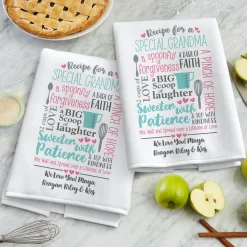 Recipe for a
SPECIAL GRANDMA
a spoonful
of forgiveness
A DASH OF
FAITH
2 cups of
LOVE
A BIG
Scoop
of laughter
A PINCH OF HOPE
Sweeten with
Patience
& TOP WITH
KINDNESS
Mix Well and Spread over a Lifetime of Love
We Love You! Maya
Reagan Riley & Wes
Recipe for a
SPECIAL GRANDMA
a spoonful
of forgiveness
A DASH OF
FAITH
2 cups of
LOVE
A BIG
Scoop
of laughter
A PINCH OF HOPE
Sweeten with
Patience
& TOP WITH
KINDNESS
Mix Well and Spread over a Lifetime of Love
We Love You! Maya
Reagan Riley & Wes